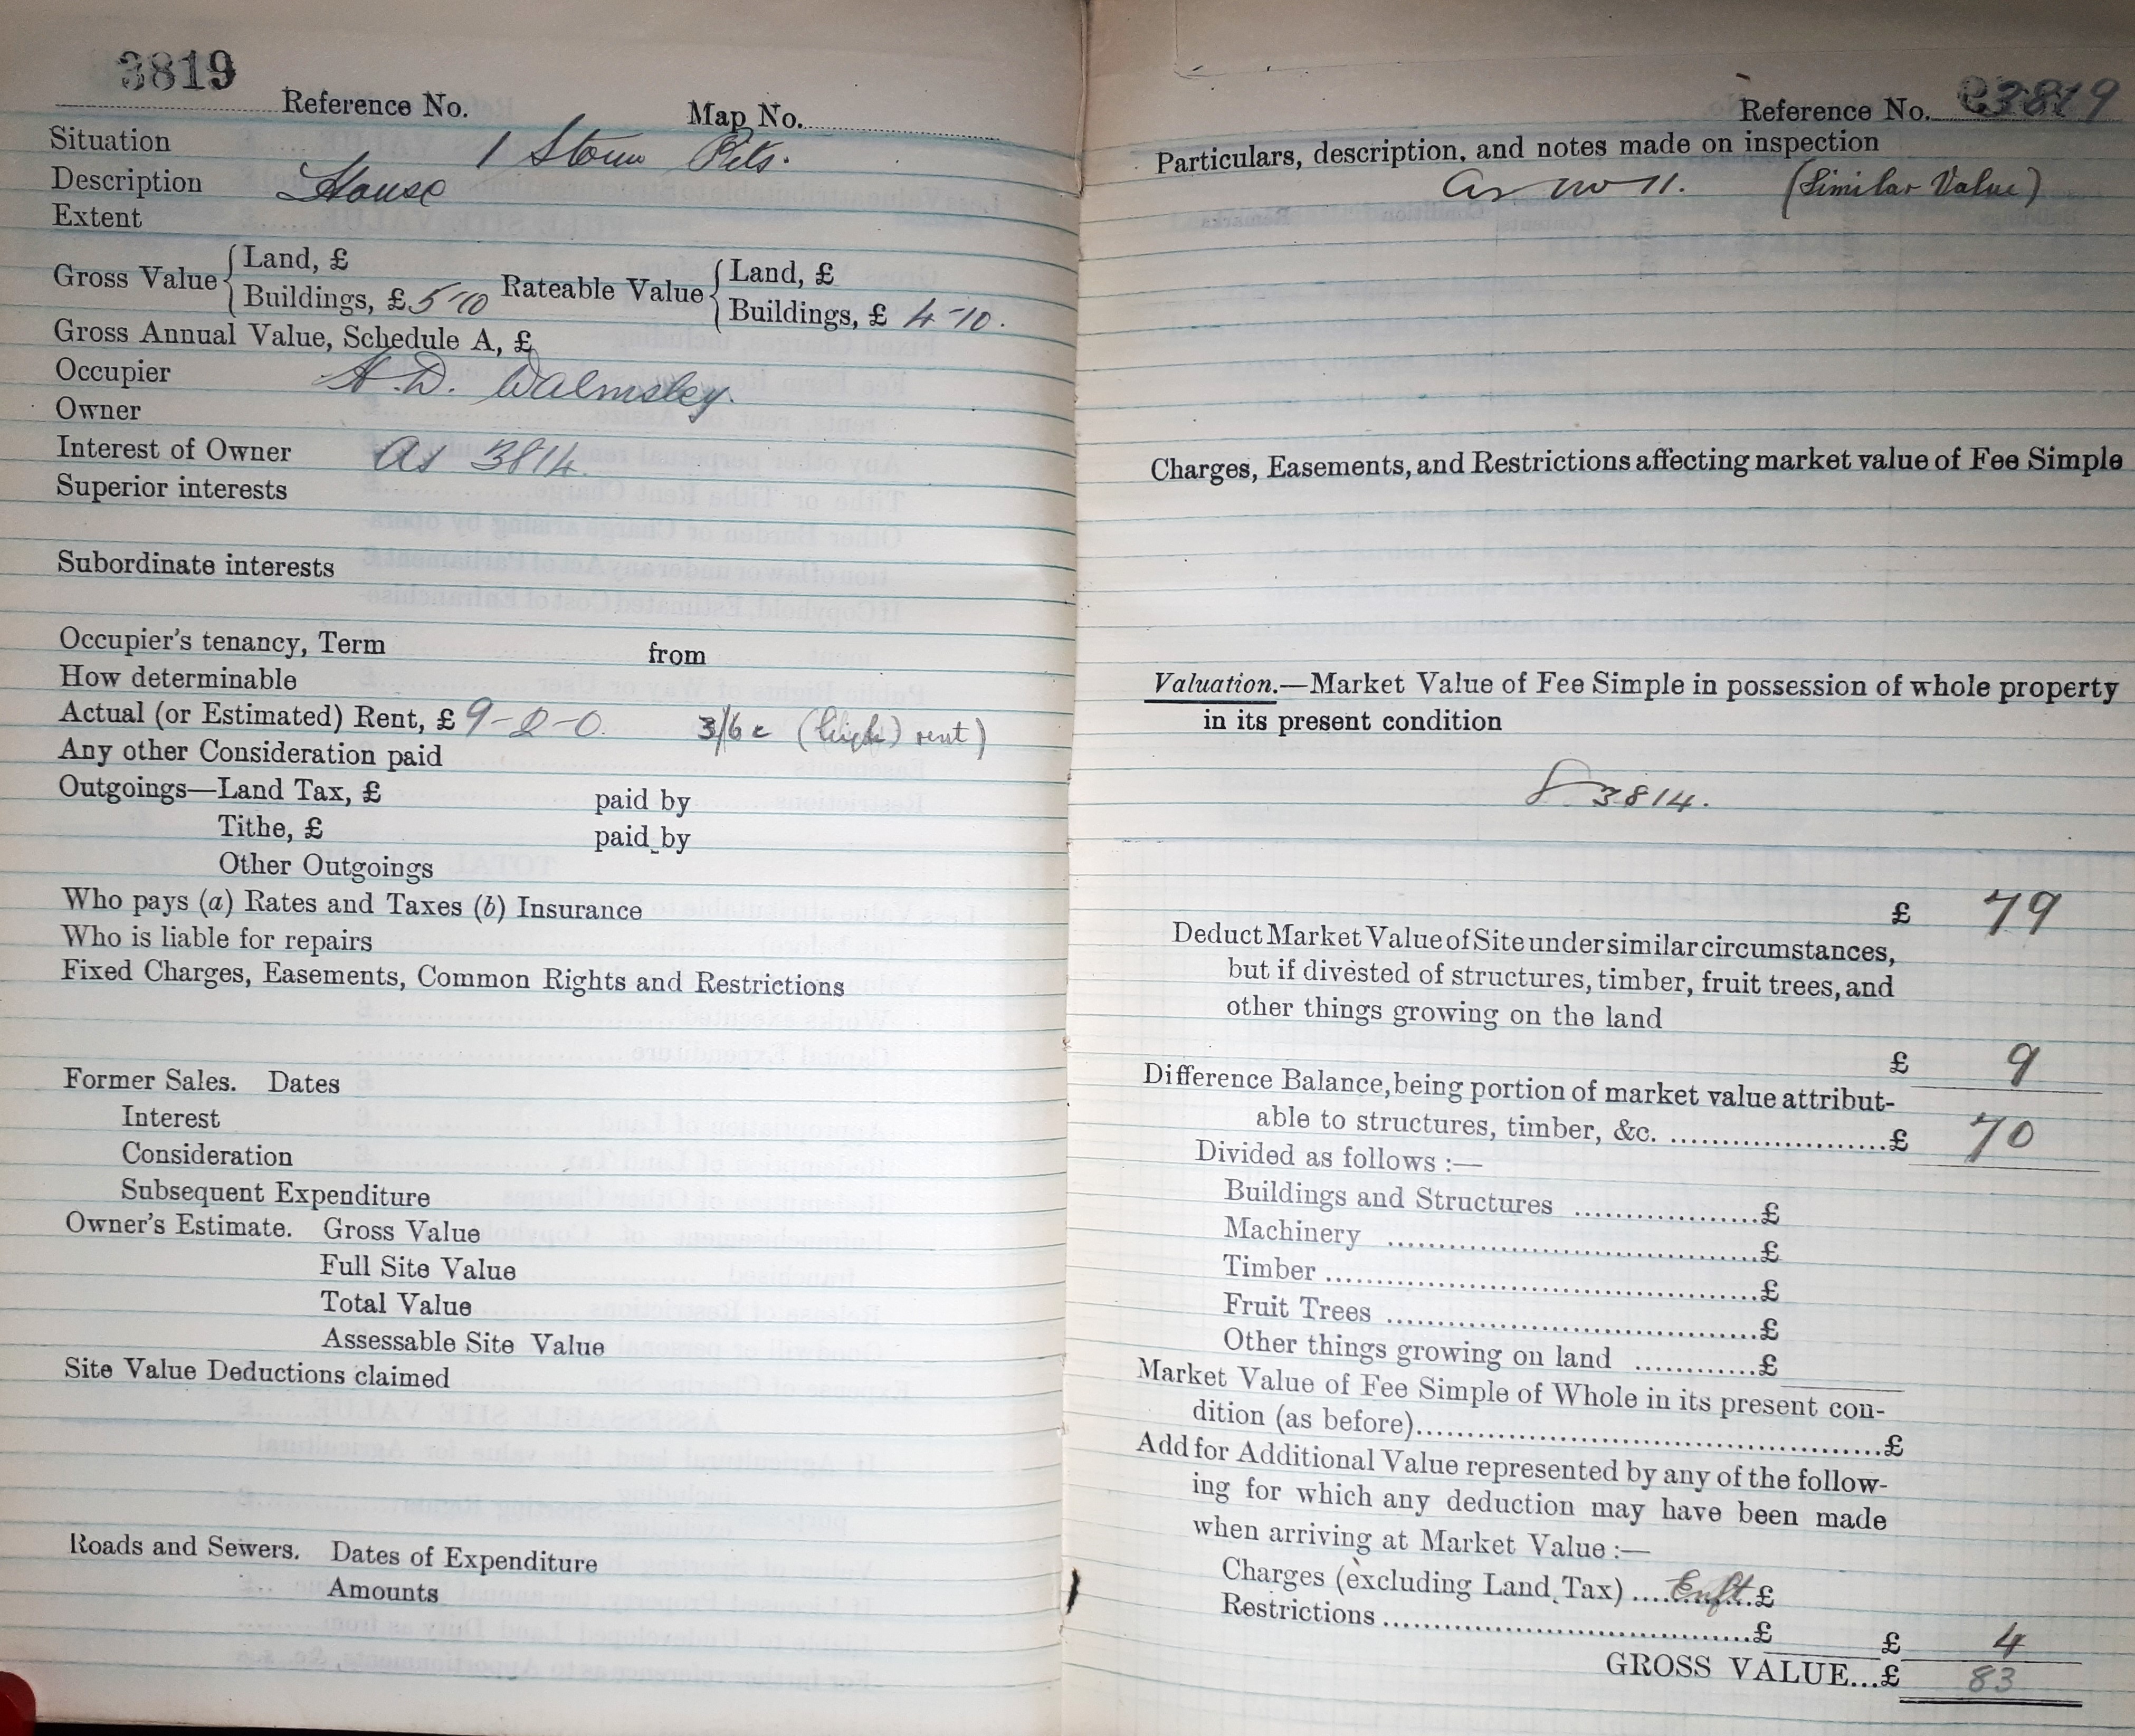 3819
Reference No. Map No.
Situation 1 Stone Pits.
Description House
Extent
Gross Value { Land, £
Buildings, £ 5-10
Rateable Value { Land, £
Buildings, £ 4-10.
Gross Annual Value, Schedule A, £
Occupier A. D. Walmsley.
Owner
Interest of Owner As 3814
Superior interests
Subordinate interests
Occupier's tenancy, Term from
How determinable
Actual (or Estimated) Rent, £ 9-2-0. 3/6 (high) rent)
Any other Consideration paid
Outgoings—Land Tax, £ paid by
Tithe, £ paid by
Other Outgoings
Who pays (a) Rates and Taxes (b) Insurance
Who is liable for repairs
Fixed Charges, Easements, Common Rights and Restrictions
Former Sales. Dates
Interest
Consideration
Subsequent Expenditure
Owner's Estimate. Gross Value
Full Site Value
Total Value
Assessable Site Value
Site Value Deductions claimed
Roads and Sewers. Dates of Expenditure
Amounts
Reference No. 3819
Particulars, description, and notes made on inspection
as no 11. (Similar Value)
Charges, Easements, and Restrictions affecting market value of Fee Simple
Valuation.—Market Value of Fee Simple in possession of whole property
in its present condition
3814.
£ 79
Deduct Market Value of Site under similar circumstances,
but if divested of structures, timber, fruit trees, and
other things growing on the land
£ 9
Difference Balance, being portion of market value attribut-
able to structures, timber, &c. £ 70
Divided as follows :—
Buildings and Structures £
Machinery £
Timber £
Fruit Trees £
Other things growing on land £
Market Value of Fee Simple of Whole in its present con-
dition (as before) £
Add for Additional Value represented by any of the follow-
ing for which any deduction may have been made
when arriving at Market Value :—
Charges (excluding Land Tax) Enft. £
Restrictions £ £ 4
GROSS VALUE...£ 83